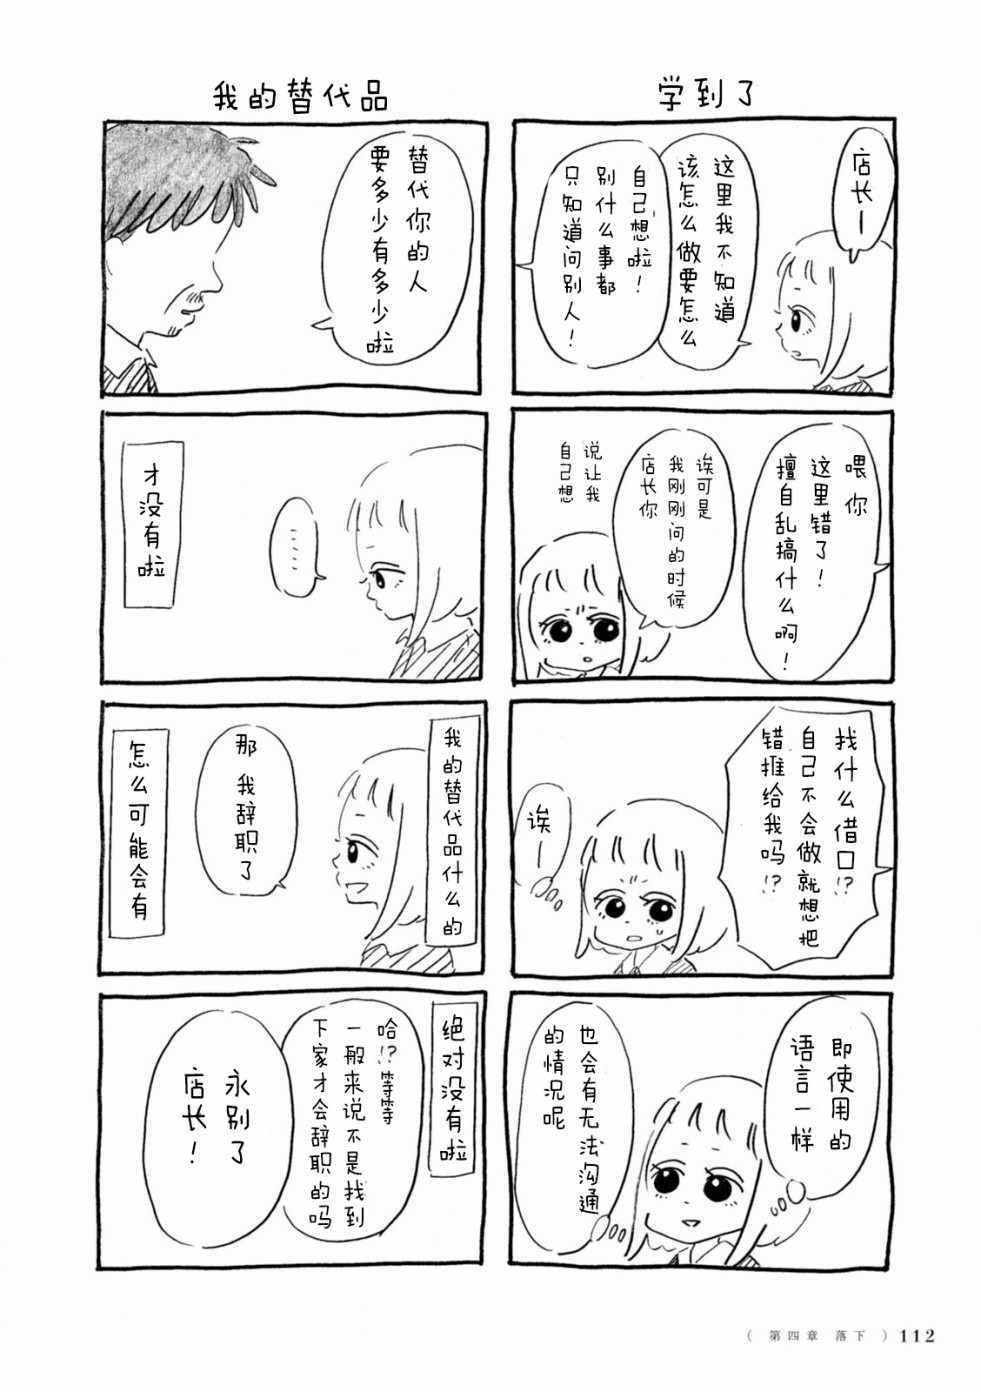 学到了
店长—
这里我不知道
该怎么做要怎么
自己想啦！
别什么事都
只知道问别人！
喂 你
这里错了！
擅自乱搞什么啊！
诶可是
我刚刚问的时候
店长你
说让我
自己想
找什么借口!?
自己不会做就想把
错推给我吗!?
诶—
即使用的
语言一样
也会有无法沟通
的情况呢
我的替代品
替代你的人
要多少有多少啦
……
才没有啦
我的替代品什么的
那 我辞职了
怎么可能会有
绝对没有啦
哈!?等等
一般来说不是找到
下家才会辞职的吗
永别了
店长！
（ 第四章 落下 ） 112